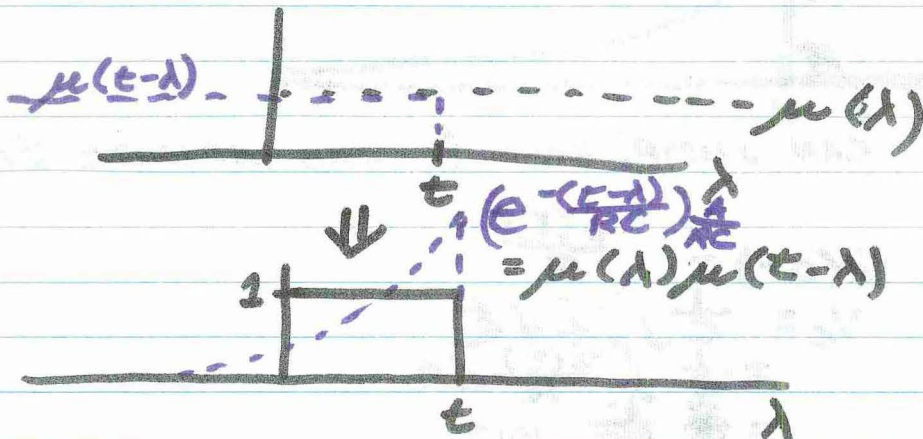 μ(t-λ)
μ(λ)
t
λ
⇓
(e^{-(t-λ)/RC}) A/RC
1
= μ(λ)μ(t-λ)
t
λ